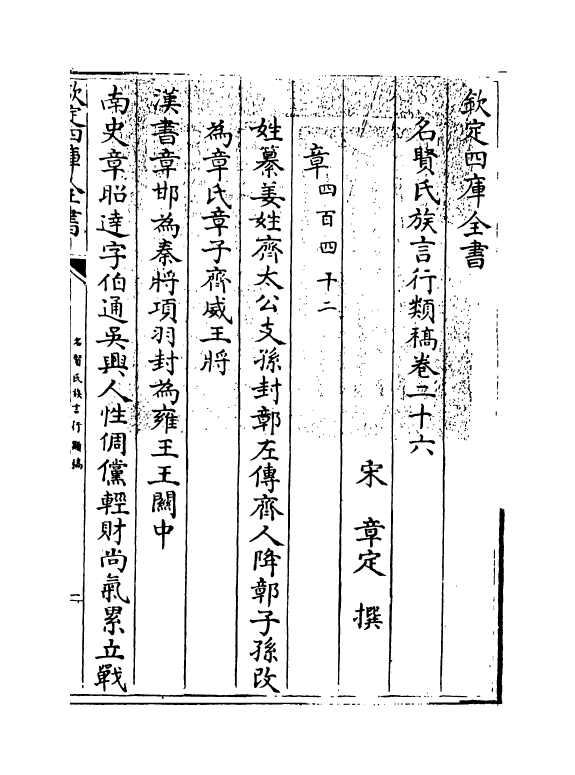 欽定四庫全書
名賢氏族言行類稿卷二十六
宋 章定 撰
章 四百四十二
姓纂姜姓齊太公支孫封鄣左傳齊人降鄣子孫改
為章氏章子齊威王將
漢書章邯為秦將項羽封為雍王王關中
南史章昭達字伯通吳興人性倜儻輕財尚氣累立戰
欽定四庫全書
名賢氏族言行類稿